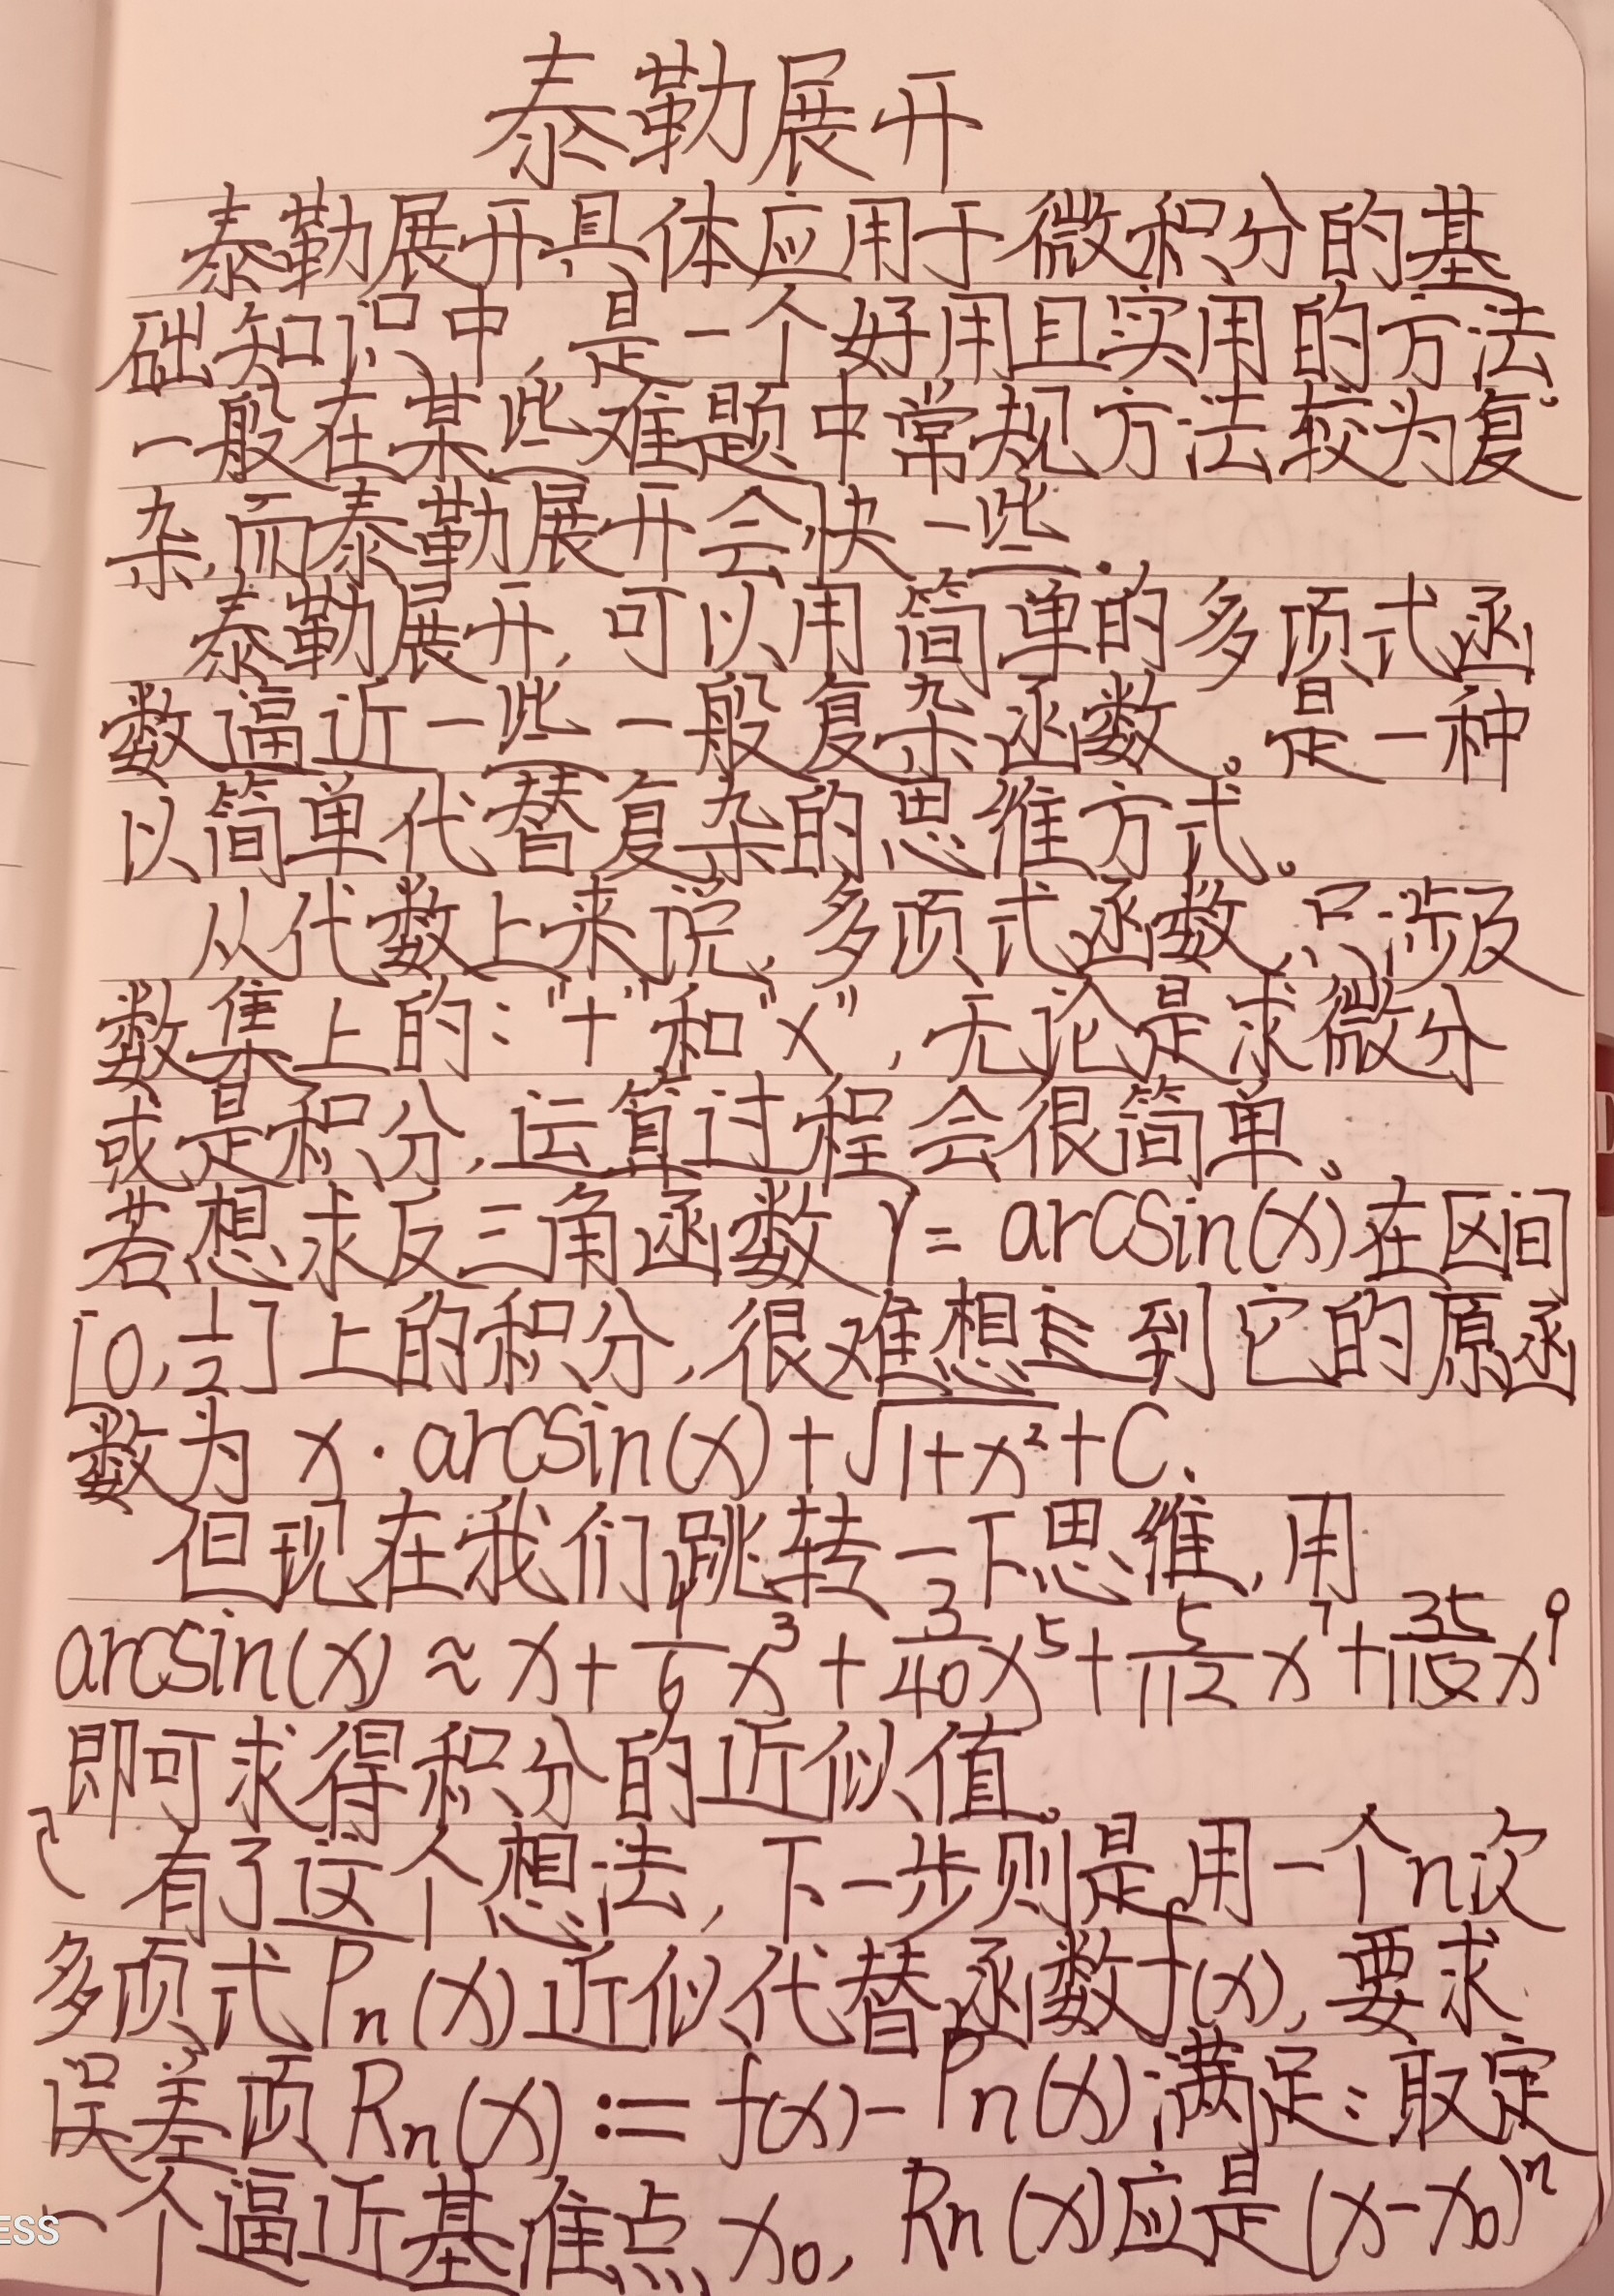 泰勒展开
泰勒展开具体应用于微积分的基
础知识中,是一个好用且实用的方法。
一般在某些难题中常规方法较为复
杂,而泰勒展开会快一些.
泰勒展开,可以用简单的多项式函
数逼近一些一般复杂函数。是一种
以简单代替复杂的思维方式。
从代数上来说,多项式函数,只涉及
数集上的:"+"和"×",无论是求微分
或是积分,运算过程会很简单。
若想求反三角函数 y= arcsin(x)在区间
[0,1/2]上的积分,很难想到它的原函
数为 x·arcsin(x)+√1+x²+C.
但现在我们跳转一下思维,用
arcsin(x)≈x+1/6x³+3/40x⁵+5/112x⁷+35/1152x⁹
即可求得积分的近似值。
有了这个想法,下一步则是用一个n次
多项式Pn(x)近似代替函数f(x),要求
误差项Rn(x):=f(x)-Pn(x)满足:取定
一个逼近基准点x₀,Rn(x)应是(x-x₀)ⁿ
ESS